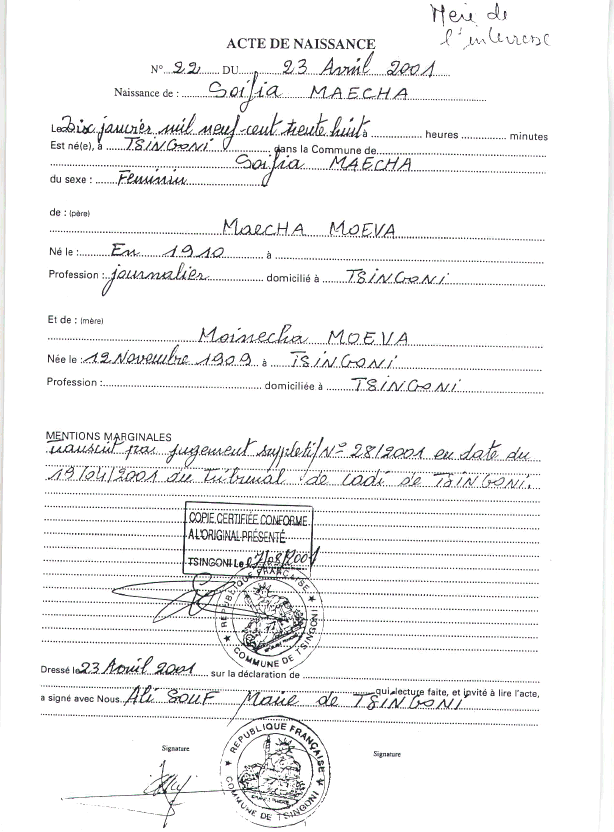 Mere de
l'interesse
ACTE DE NAISSANCE
N° 22 DU 23 Avril 2001
Naissance de : Soifia MAECHA
Le Dix janvier mil neuf cent trente huit à heures minutes
Est né(e), à TSINGONI dans la Commune de
Soifia MAECHA
du sexe : Feminin
de : (père)
MaeCHA MOEVA
Né le : En 1910 à
Profession : journalier domicilié à TSINGONI
Et de : (mère)
Moinecha MOEVA
Née le : 12 Novembre 1909 à TSINGONI
Profession : domiciliée à TSINGONI
MENTIONS MARGINALES
transcrit par jugement suppletif N° 28/2001 en date du
19/04/2001 du Tribunal de cadi de TSINGONI.
COPIE CERTIFIÉE CONFORME
A L'ORIGINAL PRÉSENTÉ
TSINGONI Le
RÉPUBLIQUE FRANÇAISE
COMMUNE DE TSINGONI
Dressé le 23 Avril 2001 sur la déclaration de
qui, lecture faite, et invité à lire l'acte,
a signé avec Nous Ali SOUF Maire de TSINGONI
Signature
Signature
RÉPUBLIQUE FRANÇAISE
COMMUNE DE TSINGONI